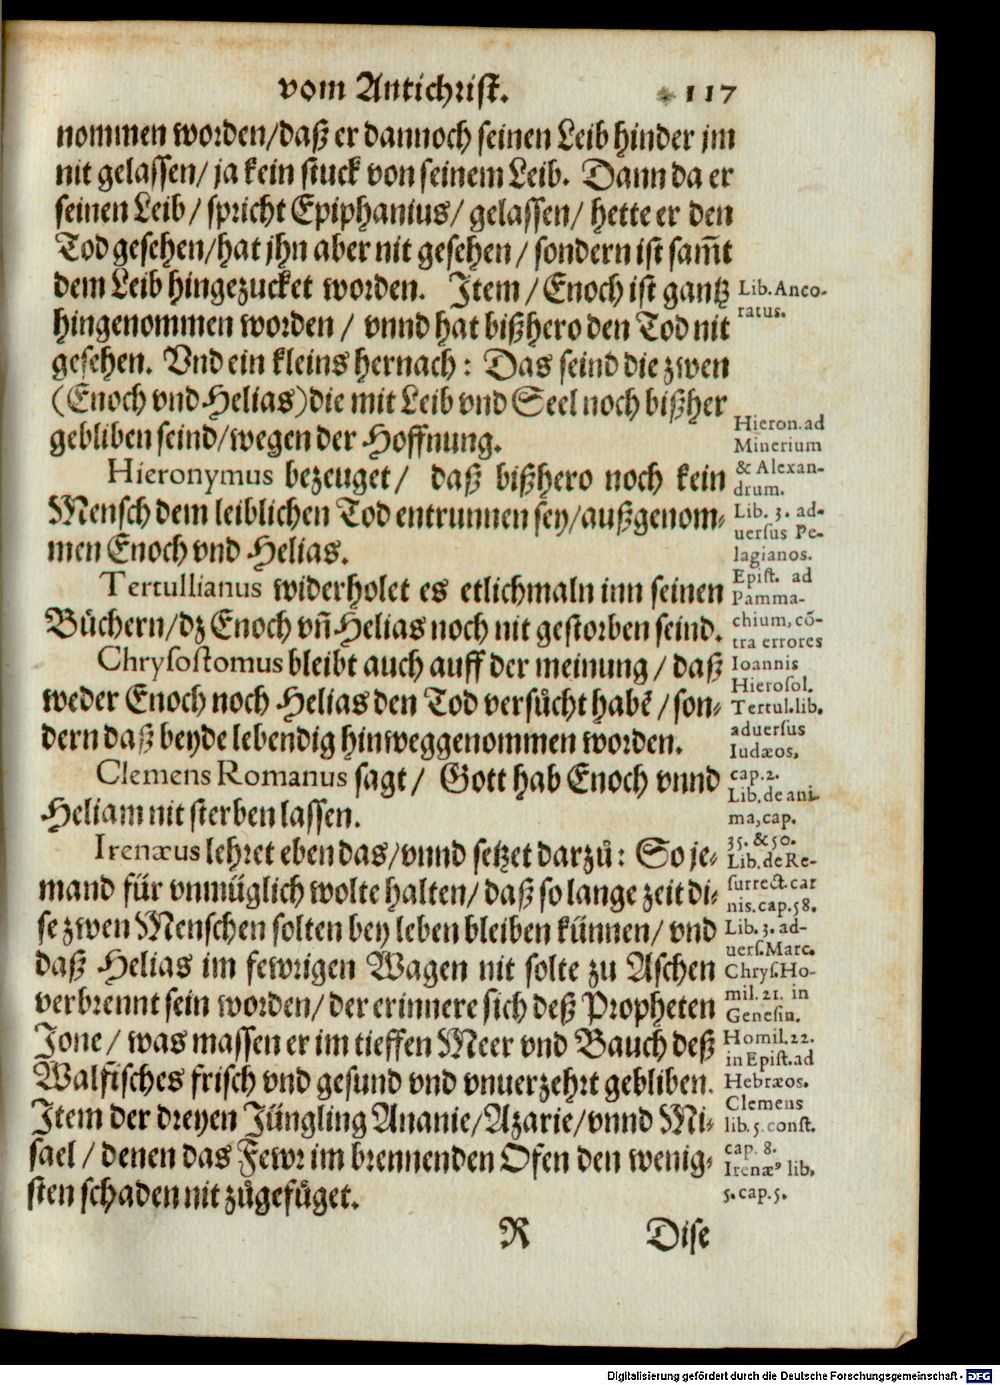 vom Antichrist. 117
nommen worden/daß er dannoch seinen Leib hinder jm
nit gelassen/ ja kein stuck von seinem Leib. Dann da er
seinen Leib/ spricht Epiphanius/ gelassen/ hette er den
Tod gesehen/hat jhn aber nit gesehen/ sondern ist sam̄t
dem Leib hingezucket worden. Item/ Enoch ist gantz
hingenommen worden/ vnnd hat bißhero den Tod nit
gesehen. Vnd ein kleins hernach: Das seind die zwen
(Enoch vnd Helias) die mit Leib vnd Seel noch bißher
gebliben seind/wegen der Hoffnung.
Hieronymus bezeuget/ daß bißhero noch kein
Mensch dem leiblichen Tod entrunnen sey/außgenom-
men Enoch vnd Helias.
Tertullianus widerholet es etlichmaln inn seinen
Bůchern/dz Enoch vn̄ Helias noch nit gestorben seind.
Chrysostomus bleibt auch auff der meinung/ daß
weder Enoch noch Helias den Tod versůcht habē/ son-
dern daß beyde lebendig hinweggenommen worden.
Clemens Romanus sagt/ Gott hab Enoch vnnd
Heliam nit sterben lassen.
Irenæus lehret eben das/vnnd setzet darzů: So je-
mand für vnmüglich wolte halten/ daß so lange zeit di-
se zwen Menschen solten bey leben bleiben künnen/ vnd
daß Helias im fewrigen Wagen nit solte zu Aschen
verbrennt sein worden/ der erinnere sich deß Propheten
Jone/ was massen er im tieffen Meer vnd Bauch deß
Walfisches frisch vnd gesund vnd vnuerzehrt gebliben.
Item der dreyen Jüngling Ananie/Azarie/vnnd Mi-
sael/ denen das Fewr im brennenden Ofen den wenig-
sten schaden nit zůgefůget.
R Dise
Lib. Anco-
ratus.
Hieron. ad
Minerium
& Alexan-
drum.
Lib. 3. ad-
uersus Pe-
lagianos.
Epist. ad
Pamma-
chium, cō-
tra errores
Ioannis
Hierosol.
Tertul. lib.
aduersus
Iudæos,
cap. 2.
Lib. de ani-
ma, cap.
35. & 50.
Lib. de Re-
surrect. car
nis. cap. 58.
Lib. 3. ad-
uers. Marc.
Chrys. Ho-
mil. 21. in
Genesin.
Homil. 22.
in Epist. ad
Hebræos.
Clemens
lib. 5. const.
cap. 8.
Irenæꝰ lib.
5. cap. 5.
Digitalisierung gefördert durch die Deutsche Forschungsgemeinschaft - DFG